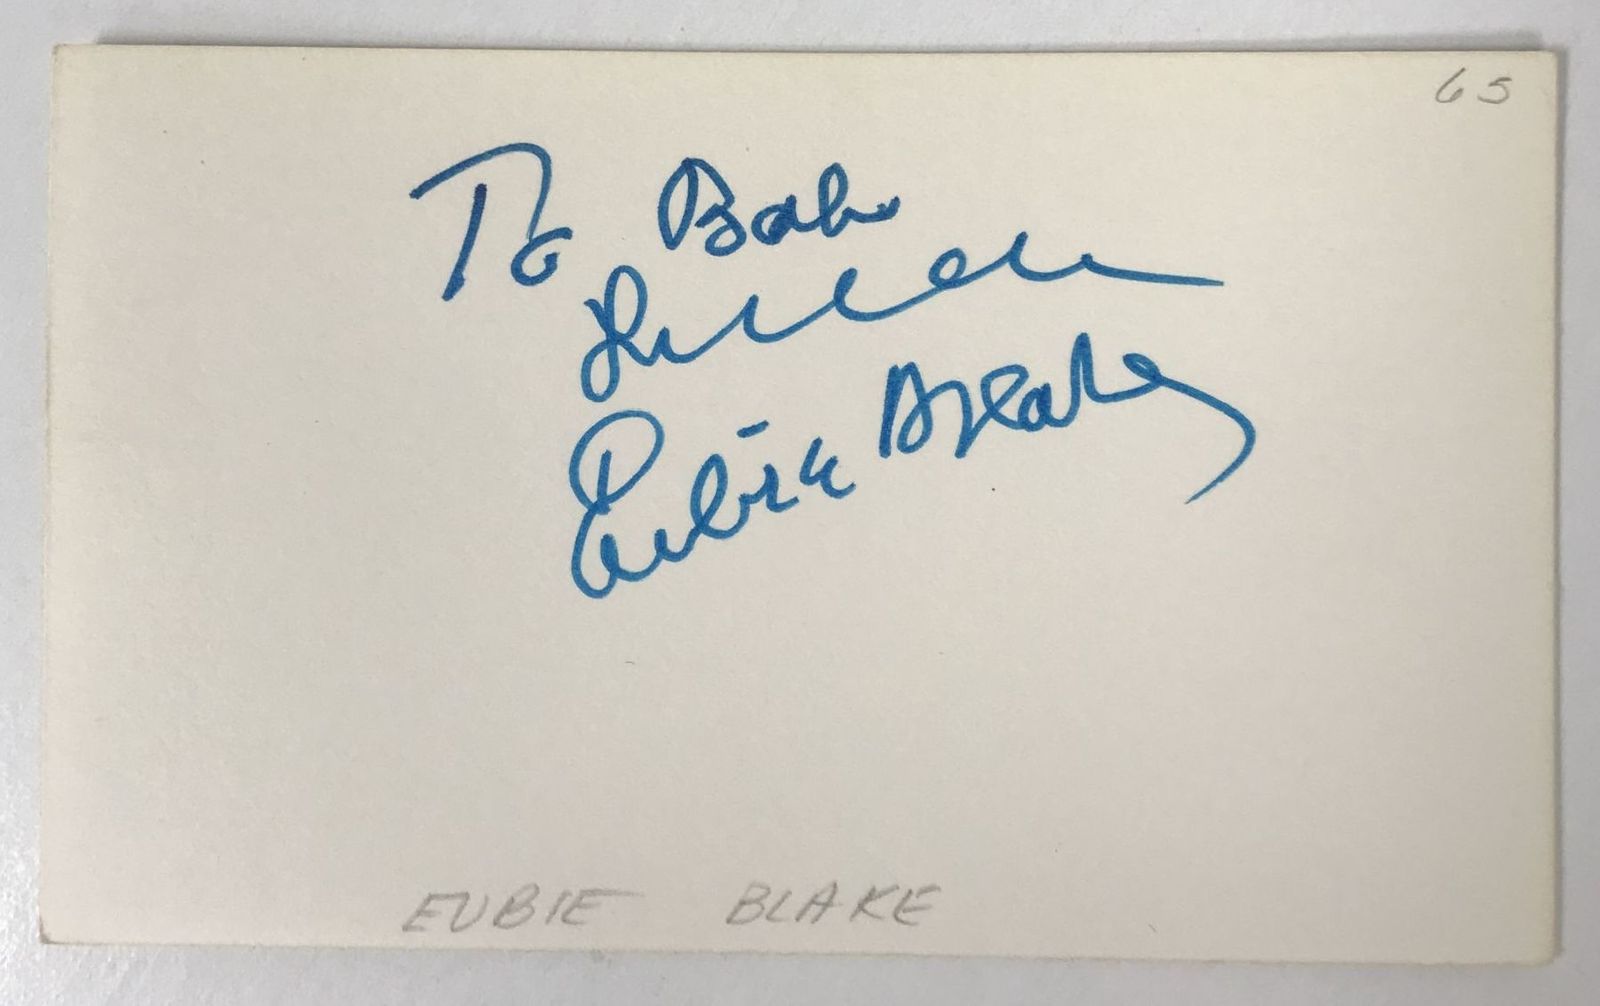 65
To Bob
Eubie Blake
EUBIE BLAKE